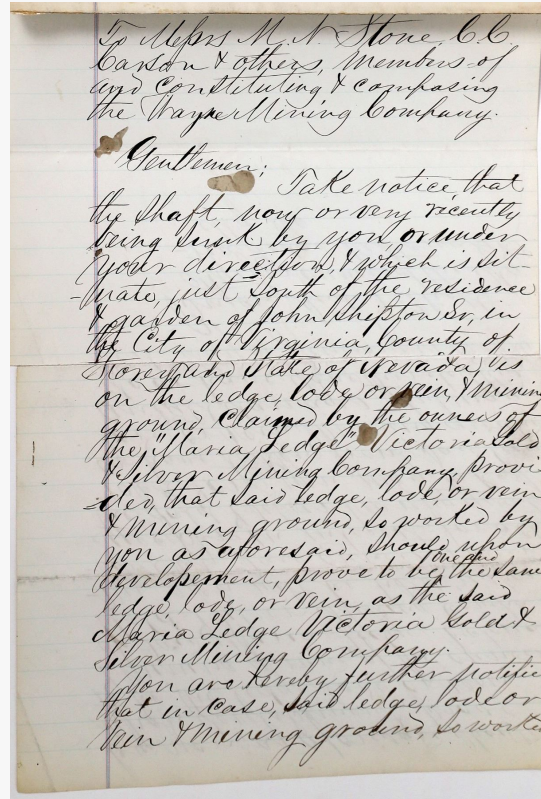 To Messrs M. N. Stone, C. C.
Carson & others, members of
and constituting & composing
the Wayne Mining Company.
Gentlemen;
Take notice, that
the shaft, now or very recently
being sunk by you, or under
your direction, & which is sit-
-uate, just south of the residence
& garden of John Shipton Sr, in
the City of Virginia, County of
Storey and State of Nevada, is
on the ledge, lode, or vein, & mining
ground, claimed by the owners of
the "Maria Ledge" Victoria Gold
& Silver Mining Company, provi
-ded, that said ledge, lode, or vein
& mining ground, so worked by
you as aforesaid, should upon
developement, prove to be one and the same
ledge lode, or vein, as the said
Maria Ledge Victoria Gold &
Silver Mining Company.
You are hereby further notifie
that in case, said ledge, lode or
vein & mining ground, so worke